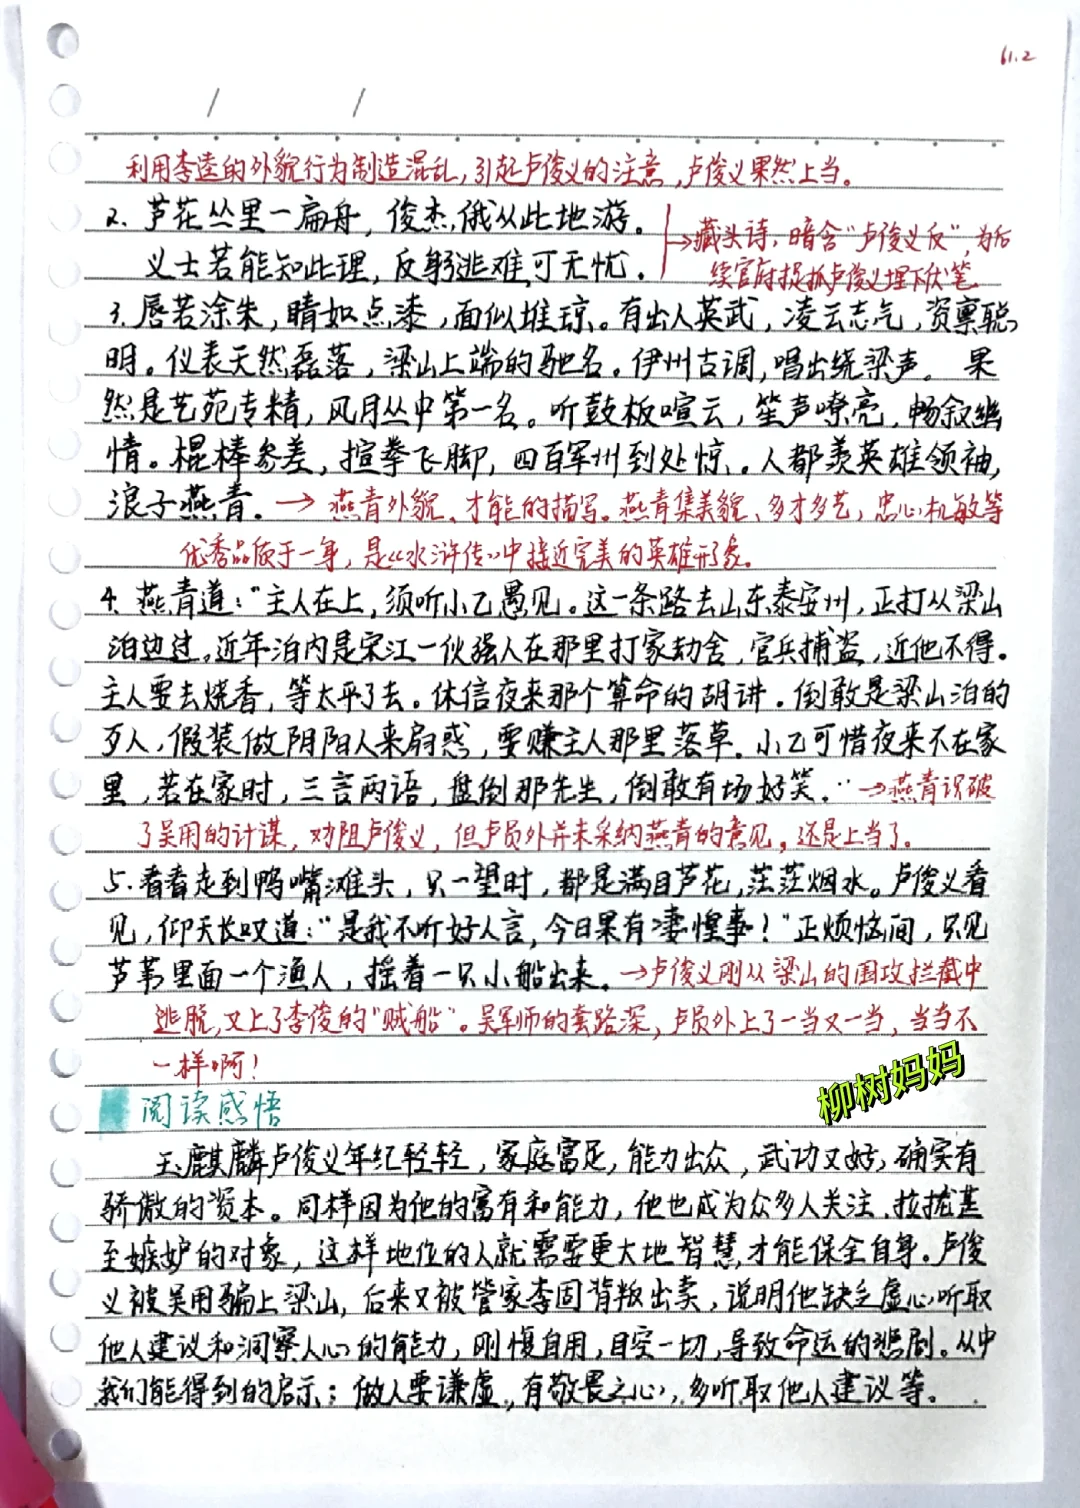 61.2
利用李逵的外貌行为制造混乱,引起卢俊义的注意,卢俊义果然上当。
2. 芦花丛里一扁舟,俊杰俄从此地游。
义士若能知此理,反躬逃难可无忧。
→藏头诗,暗含“卢俊义反”,为后
续官府捉抓卢俊义埋下伏笔
3. 唇若涂朱,睛如点漆,面似堆琼。有出人英武,凌云志气,资禀聪
明。仪表天然磊落,梁山上端的驰名。伊州古调,唱出绕梁声。果
然是艺苑专精,风月丛中第一名。听鼓板喧云,笙声嘹亮,畅叙幽
情。棍棒参差,揎拳飞脚,四百军州到处惊。人都羡英雄领袖,
浪子燕青。→燕青外貌、才能的描写。燕青集美貌、多才多艺,忠心机敏等
优秀品质于一身,是《水浒传》中接近完美的英雄形象。
4. 燕青道:“主人在上,须听小乙愚见。这一条路去山东泰安州,正打从梁山
泊边过。近年泊内是宋江一伙强人在那里打家劫舍,官兵捕盗,近他不得。
主人要去烧香,等太平了去。休信夜来那个算命的胡讲。倒敢是梁山泊的
歹人,假装做阴阳人来扇惑,要赚主人那里落草。小乙可惜夜来不在家
里,若在家时,三言两语,盘倒那先生,倒敢有场好笑。”→燕青识破
了吴用的计谋,劝阻卢俊义,但卢员外并未采纳燕青的意见,还是上当了。
5. 看看走到鸭嘴滩头,只一望时,都是满目芦花,茫茫烟水。卢俊义看
见,仰天长叹道:“是我不听好人言,今日果有凄惶事!”正烦恼间,只见
芦苇里面一个渔人,摇着一只小船出来。→卢俊义刚从梁山的围攻拦截中
逃脱,又上了李俊的“贼船”。吴军师的套路深,卢员外上了一当又一当,当当不
一样啊!
柳树妈妈
阅读感悟
玉麒麟卢俊义年纪轻轻,家庭富足,能力出众,武功又好,确实有
骄傲的资本。同样因为他的富有和能力,他也成为众多人关注、拉拢甚
至嫉妒的对象,这样地位的人就需要更大地智慧,才能保全自身。卢俊
义被吴用骗上梁山,后来又被管家李固背叛出卖,说明他缺乏虚心听取
他人建议和洞察人心的能力,刚愎自用,目空一切,导致命运的悲剧。从中
我们能得到的启示:做人要谦虚,有敬畏之心,多听取他人建议等。